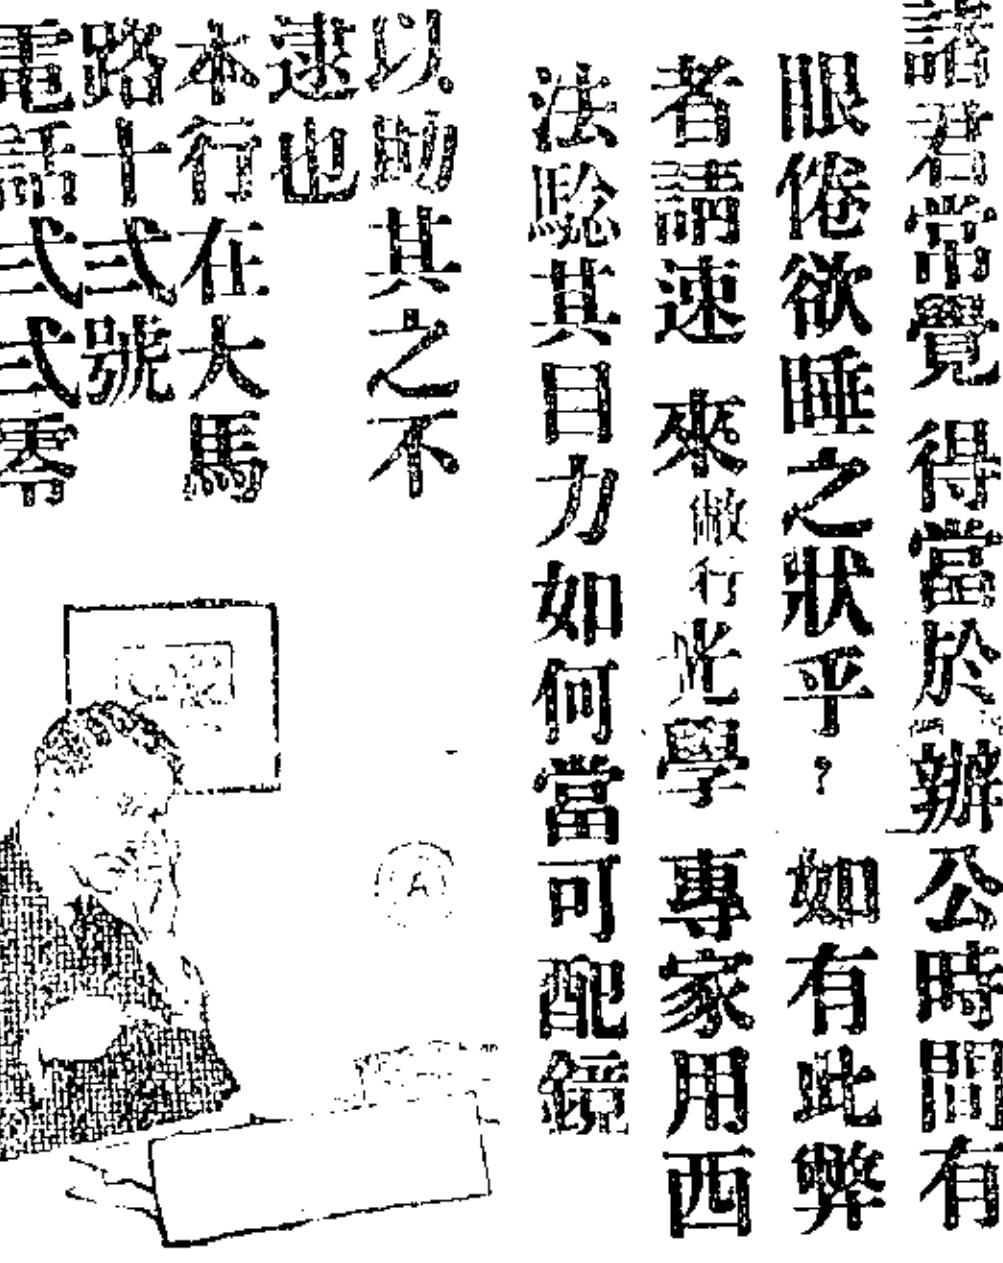 諸君常覺得當於辦公時間有
眼倦欲睡之狀乎?如有此弊
者請速來敝行光學專家用西
法驗其目力如何當可配鏡
以助其之不
逮也
本行在大馬
路十弍號
電話弍弍零
A